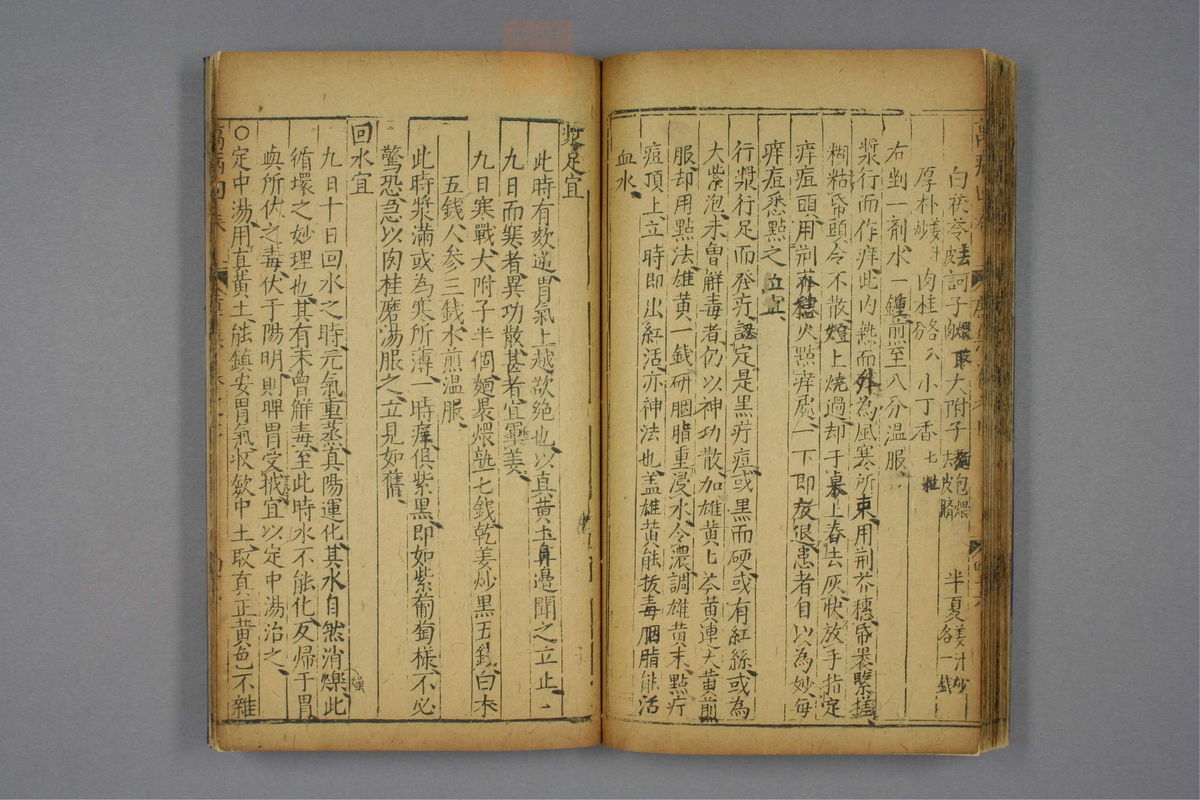 白茯苓皮去 訶子煨取肉 大附子麵包煨去皮臍 半夏姜汁炒各一錢
厚朴姜汁炒 肉桂 各六分 小丁香七粒
右剉一劑水一鍾煎至八分溫服
漿行而作痒此內熱而外為風寒所束用荊芥穗昂裹緊搓
糊粘昂頭令不散燈上燒過却于桌上舂去灰快放手指定
痒痘頭用荊芥穗火點痒處一下即疫很患者自以為妙每
痒痘悉點之立止
行漿行足而發疔認定是黑疔痘或黑而硬或有紅絲或為
大紫泡未曾解毒者仍以神功散加雄黃七芩黃連大黃煎
服却用點法雄黃一錢研胭脂重浸水令濃調雄黃末點疔
痘頂上立時即出紅活亦神法也盖雄黃能拔毒胭脂能活
血水
漿足宜
此時有欬逆胃氣上越欲絕也以真黃土鼻邊聞之立止
九日而寒者異功散甚者宜靈姜
九日寒戰大附子半個麵裹煨熟七錢乾姜炒黑五錢白朮
五錢人參三錢水煎溫服
此時漿滿或為寒所薄一時痒俱紫黑即如紫葡萄樣不必
驚恐急以肉桂磨湯服之立見如舊
回水宜
九日十日回水之時元氣重蒸真陽運化其水自然消爍此
循環之妙理也其有未曾解毒至此時水不能化反歸于胃
與所伏之毒伏于陽明則脾胃受㧾宜以定中湯治之
〇定中湯用宜黃土能鎮安胃氣收斂中土取真正黃色不雜